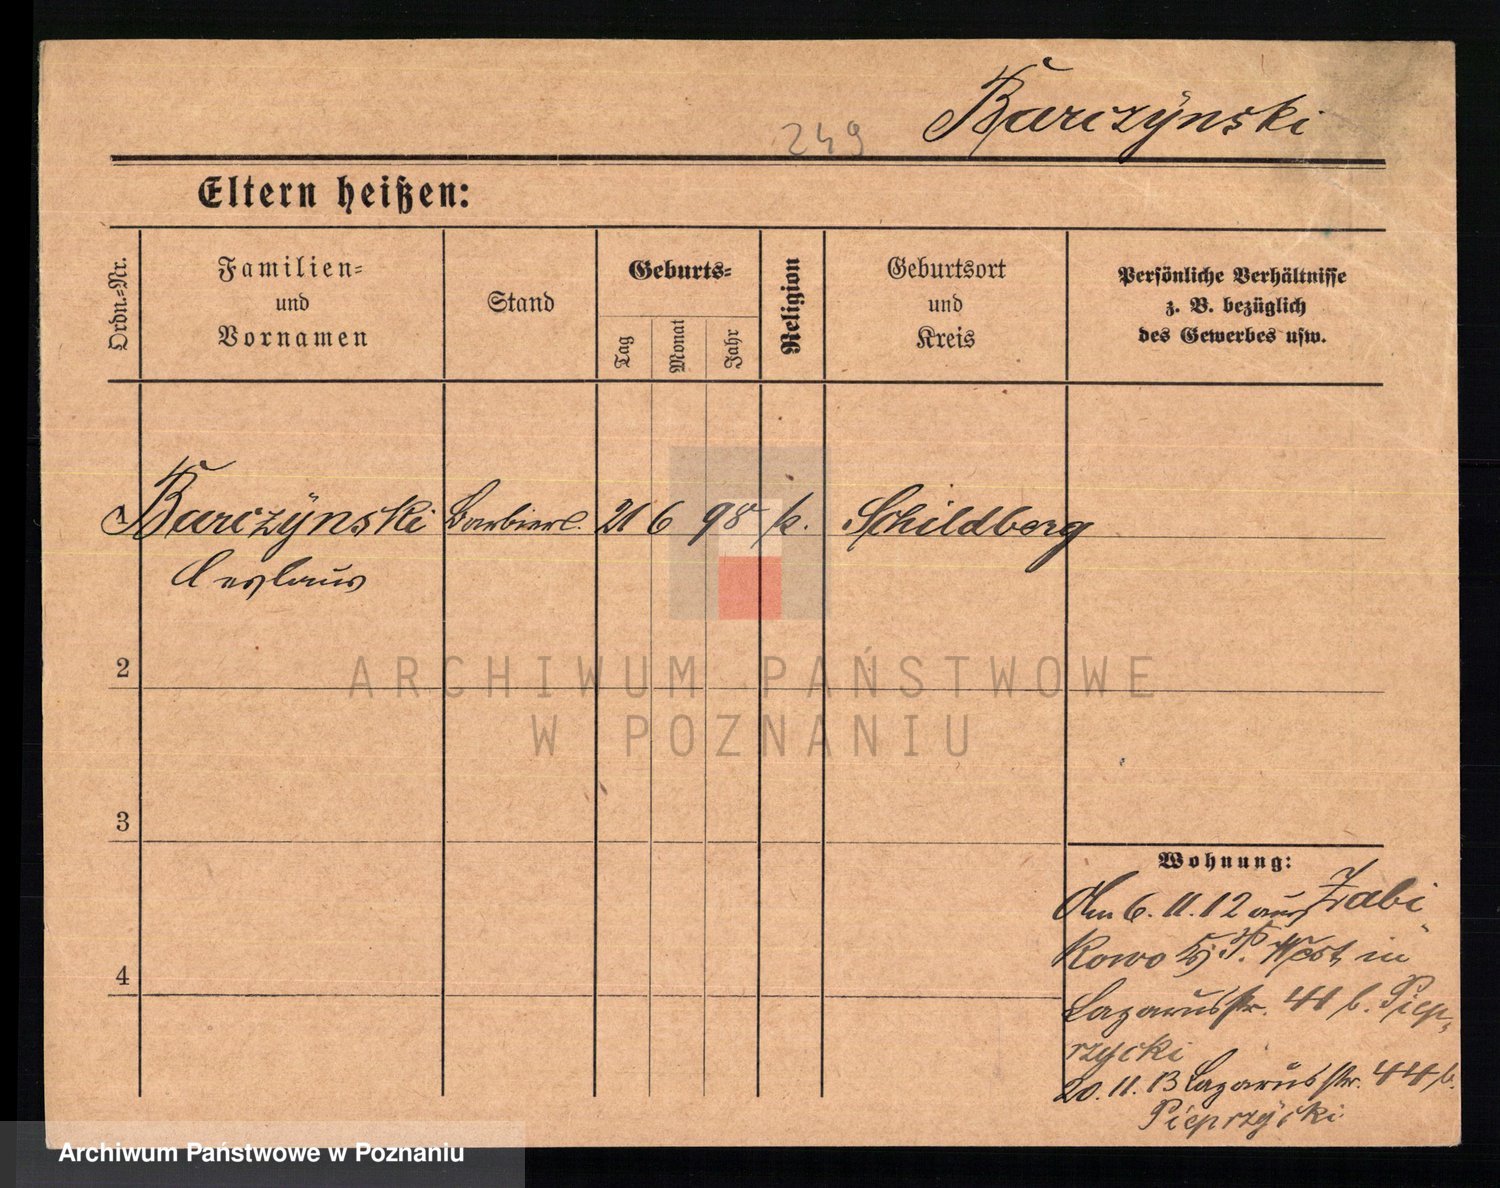 Barczÿnski
249
Eltern heißen:
Ordn.-Nr.
Familien-
und
Vornamen
Stand
Geburts-
Tag
Monat
Jahr
Religion
Geburtsort
und
Kreis
Persönliche Verhältnisse
z. B. bezüglich
des Gewerbes usw.
1 Barczÿnski Barbierl. 21 6 98 k. Schildberg
Ceslaus
2
3
4
ARCHIWUM PAŃSTWOWE
W POZNANIU
Wohnung:
Am 6. 11. 12 aus Zabi
kowo Kr. P. West in
Lazarusstr. 41 b. Piep-
rzycki
20. 11. 13 Lazarusstr. 44 b.
Pieprzÿcki
Archiwum Państwowe w Poznaniu